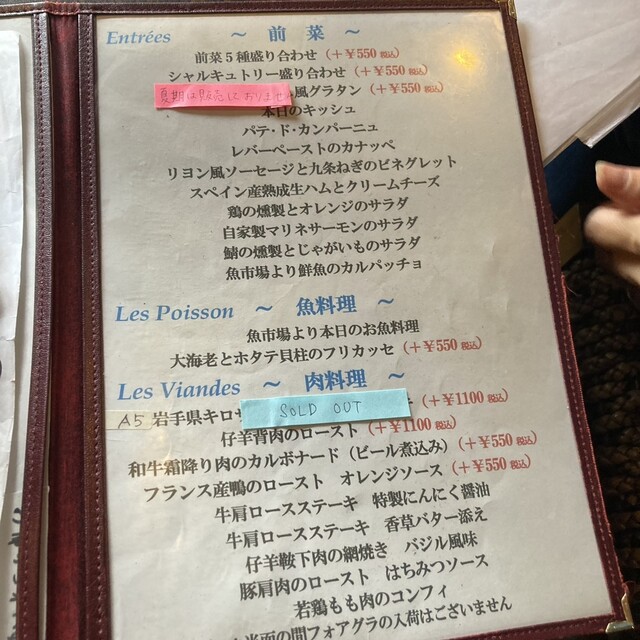 Entrées ～ 前 菜 ～
前菜５種盛り合わせ（＋￥550 税込）
シャルキュトリー盛り合わせ（＋￥550 税込）
夏期は販売しておりません
風グラタン（＋￥550 税込）
本日のキッシュ
パテ・ド・カンパーニュ
レバーペーストのカナッペ
リヨン風ソーセージと九条ねぎのビネグレット
スペイン産熟成生ハムとクリームチーズ
鶏の燻製とオレンジのサラダ
自家製マリネサーモンのサラダ
鯖の燻製とじゃがいものサラダ
魚市場より鮮魚のカルパッチョ
Les Poisson ～ 魚料理 ～
魚市場より本日のお魚料理
大海老とホタテ貝柱のフリカッセ（＋￥550 税込）
Les Viandes ～ 肉料理 ～
A5 岩手県キロサ SOLD OUT （＋￥1100 税込）
仔羊背肉のロースト（＋￥1100 税込）
和牛霜降り肉のカルボナード（ビール煮込み）（＋￥550 税込）
フランス産鴨のロースト オレンジソース（＋￥550 税込）
牛肩ロースステーキ 特製にんにく醤油
牛肩ロースステーキ 香草バター添え
仔羊鞍下肉の網焼き バジル風味
豚肩肉のロースト はちみつソース
若鶏もも肉のコンフィ
当面の間フォアグラの入荷はございません